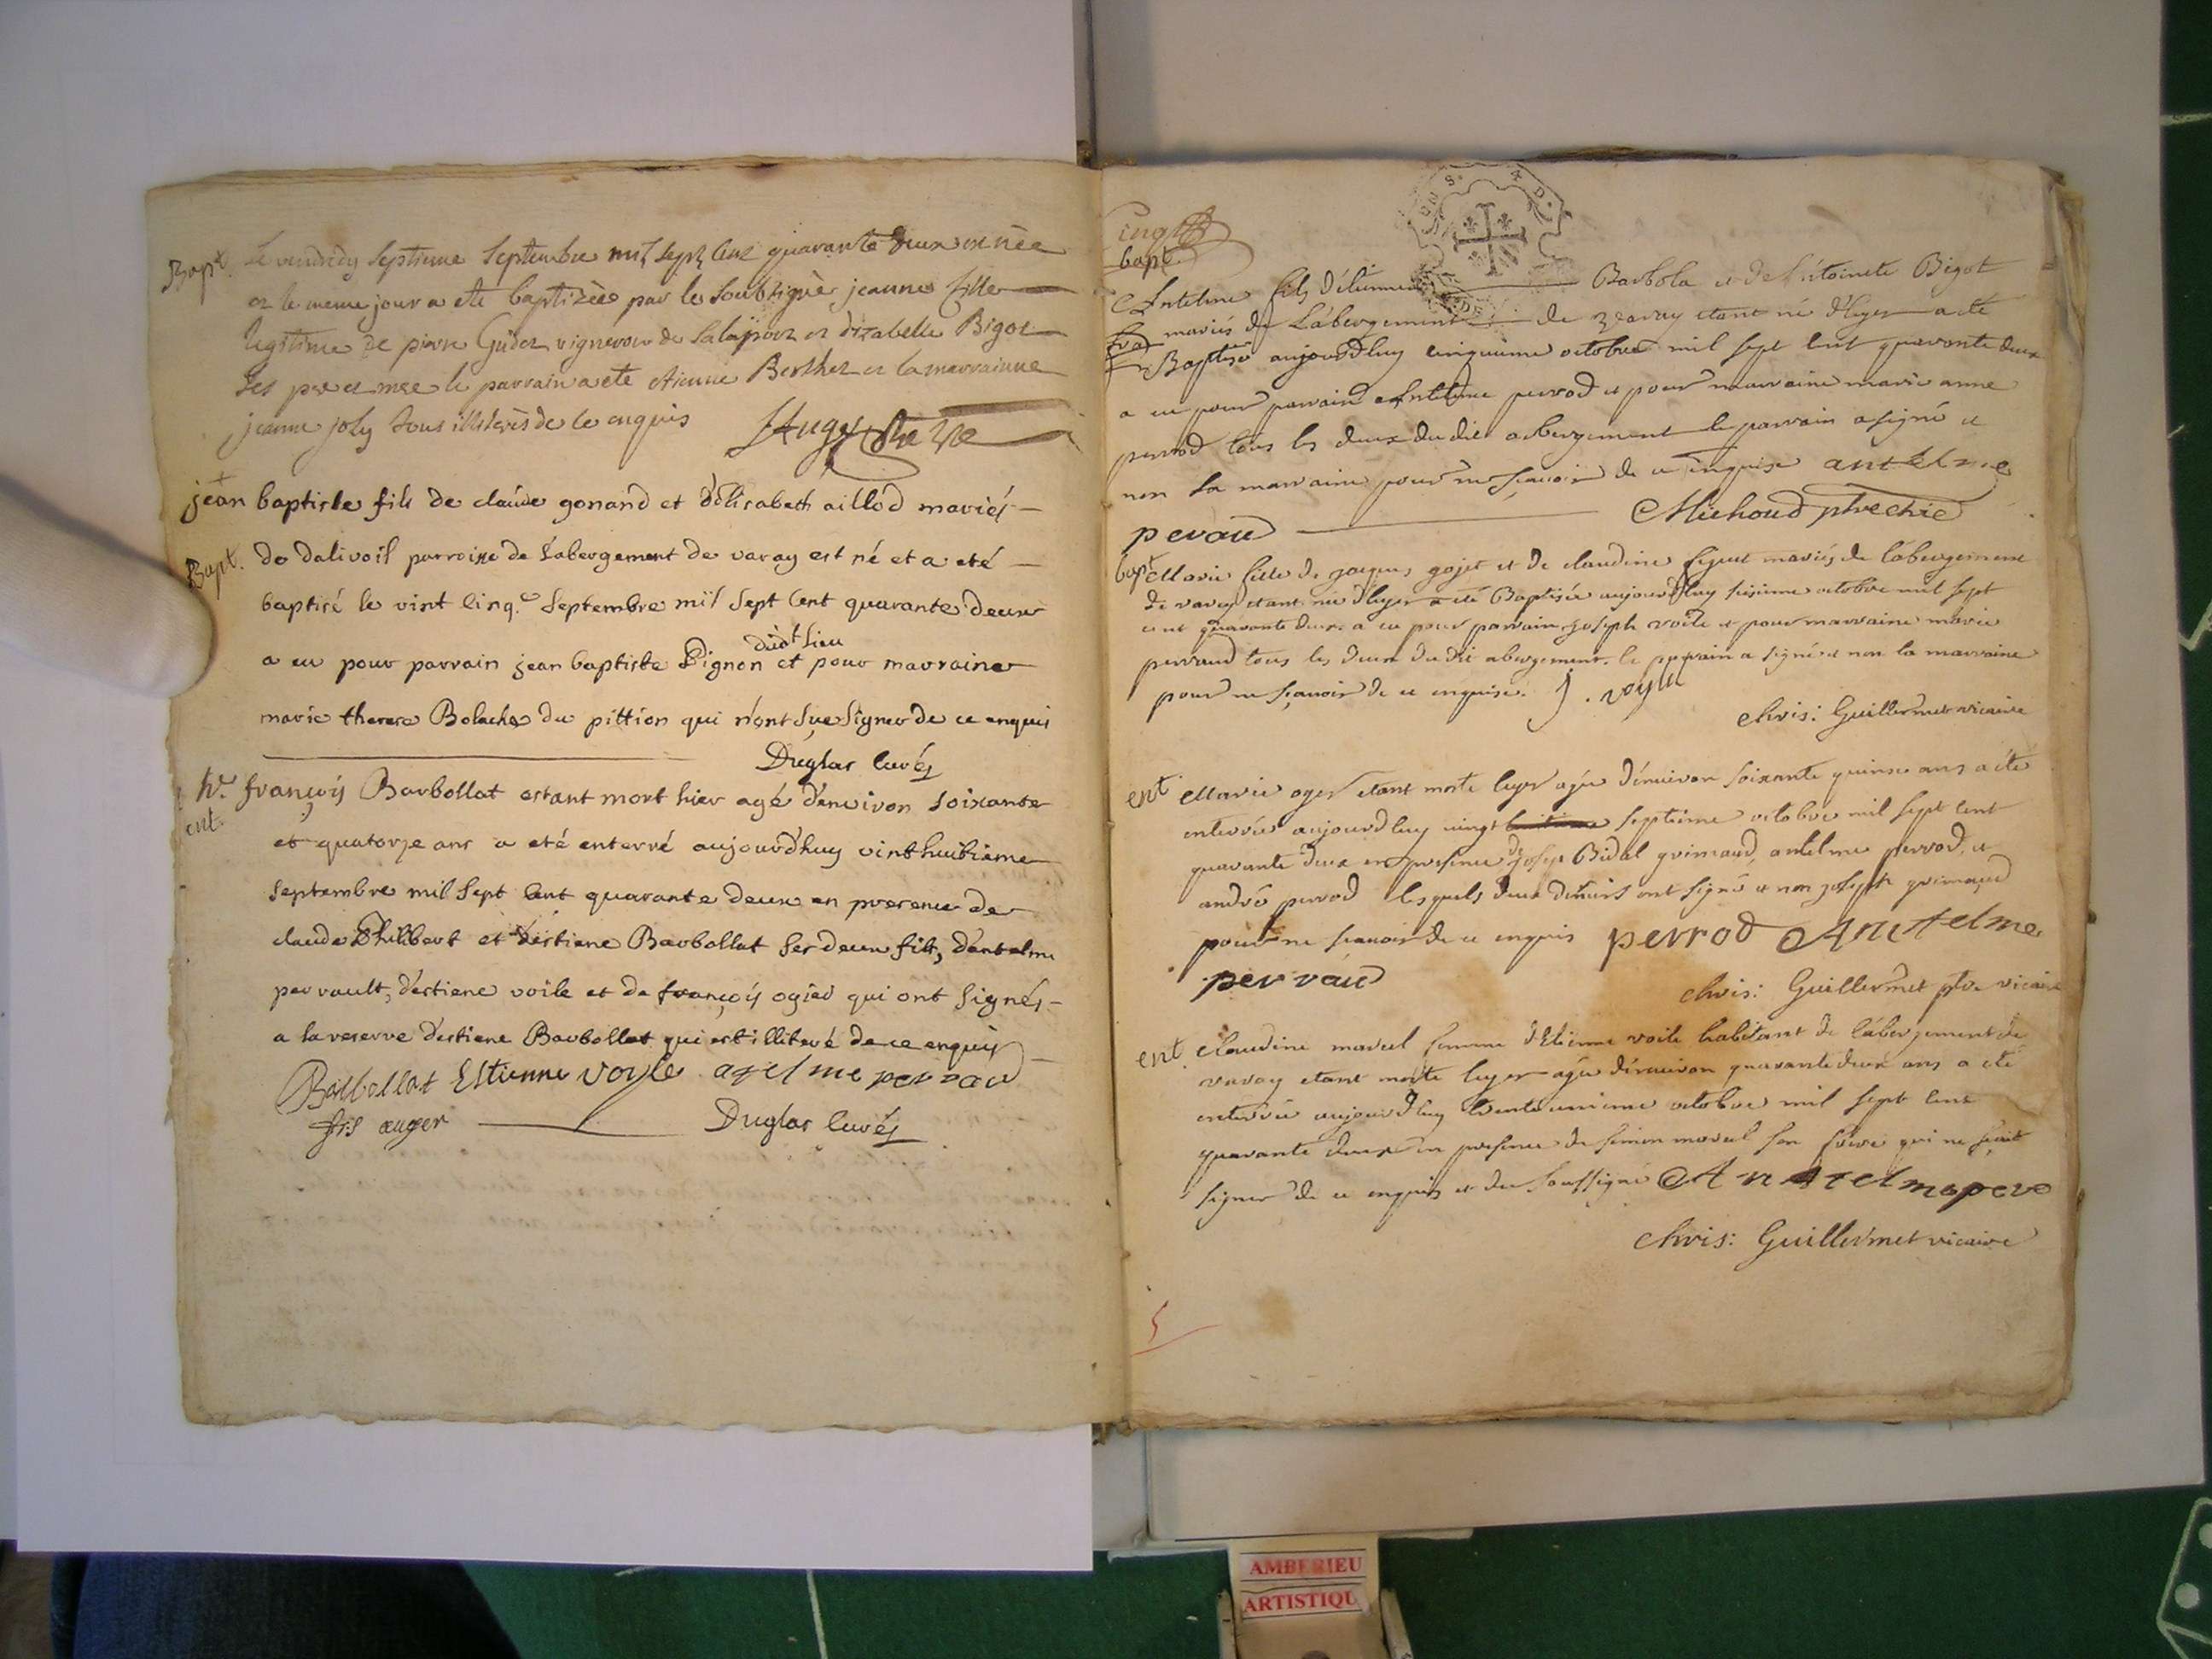 Bapt. Le vendredy septieme Septembre mil sept cent quarante deux est née
et le meme jour a eté baptizée par le soubsigné jeanne fille
legitime de pierre Guidet vigneron de Salapour et dizabelle Bigot
ses pere et mere le parrain a eté etienne Berthet et la marrainne
jeanne joly tous illiterés de ce enquis
jean baptiste fils de claude gonand et d'elisabeth aillod mariés
Bapt. de dalivoil parroisse de Labergement de varay est né et a eté
baptisé le vint cinq.e Septembre mil Sept Cent quarante deux
dudt lieu
a eu pour parrain jean baptiste Pignon et pour marraine
marie therese Bolache du pittion qui n'ont sçue signer de ce enquis
Duglas curé
hr. françois Barbollat estant mort hier agé d'environ soixante
ent. et quatorze ans a eté enterré aujourd'huy vinthuitieme
Septembre mil Sept Cent quarante deux en presence de
claude Philibert et d'estiene Barbollat ses deux fils, d'entelme
perrault, d'estiene voile et de françois ogier qui ont signés
a la reserve d'estiene Barbollat qui est illiteré de ce enquis
Barbollat Estienne voyle antelme perraud
frs auger Duglas curé
vingt
bapt.
Antelme fils d'étienne Barbola et de Antoinete Bigot
mariés de Labergement de varay etant né d'hyer a eté
Baptisé aujourd'huy cinquieme octobre mil sept cent quarante deux
a eu pour parrain Antelme perrod et pour marraine marie anne
perrod tous les deux dudit abergement le parrain a signé et
non la marraine pour ne sçavoir de ce enquise antelme
peraud Michoud ptre
bapt Marie fille de jacques gojet et de claudine mariés de l'abergement
de varey etant née d'hyer a été Baptisée aujourd'huy sisieme octobre mil sept
cent quarante deux a eu pour parrain joseph voile et pour marraine marie
perraud tous les deux dudit abergement. le parrain a signé et non la marraine
pour ne sçavoir de ce enquise. J. voyle
chris: Guillermet vicaire
ent Marie oger etant morte hyer agée d'environ soixante quinse ans a été
enterrée aujourdhuy vingt septiéme octobre mil sept cent
quarante deux en presence de josep Bidal grimaud, antelme perrod, et
andré perrod lesquels deux derniers ont signé et non joseph grimaud
pour ne scavoir de ce enquis perrod Anctelme
perraud
chris: Guillermet ptre vicaire
ent. Claudine morel femme d'Etienne voile habitant de l'abergement de
varay etant morte hyer agée d'environ quarante deux ans a été
enterrée aujourd'huy trente unieme octobre mil sept cent
quarante deux en presence de simon morel son frère qui ne sçait
signer de ce enquis et du soussigné Anatelme pero
chris: Guillermet vicaire
5
AMBERIEU
ARTISTIQU